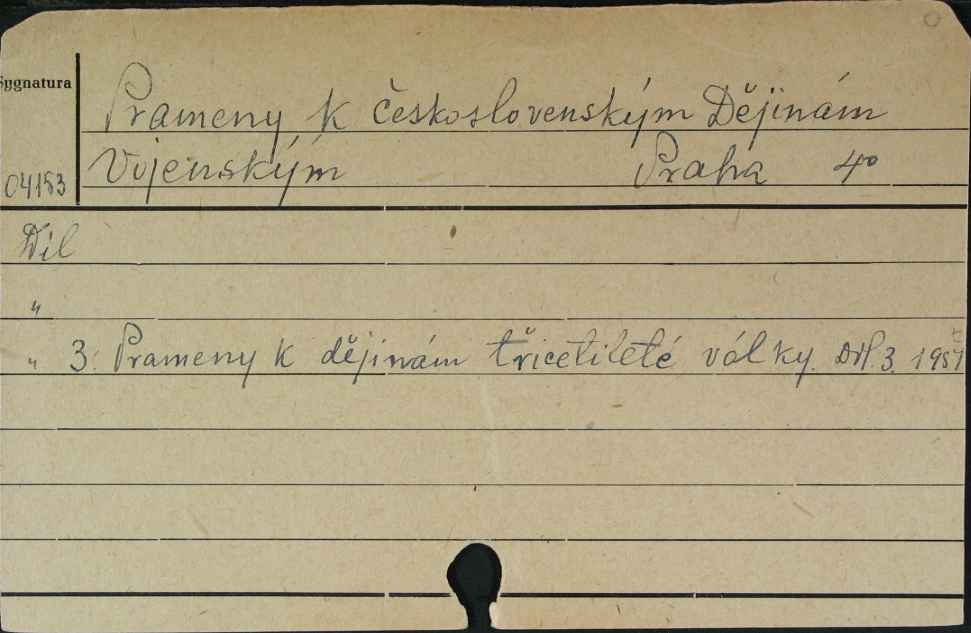 Sygnatura
Prameny k československým Dějinám
04153 Vojenským Praha 4°
Díl
"
" 3. Prameny k dějinám třicetileté války. Díl. 3. 1951